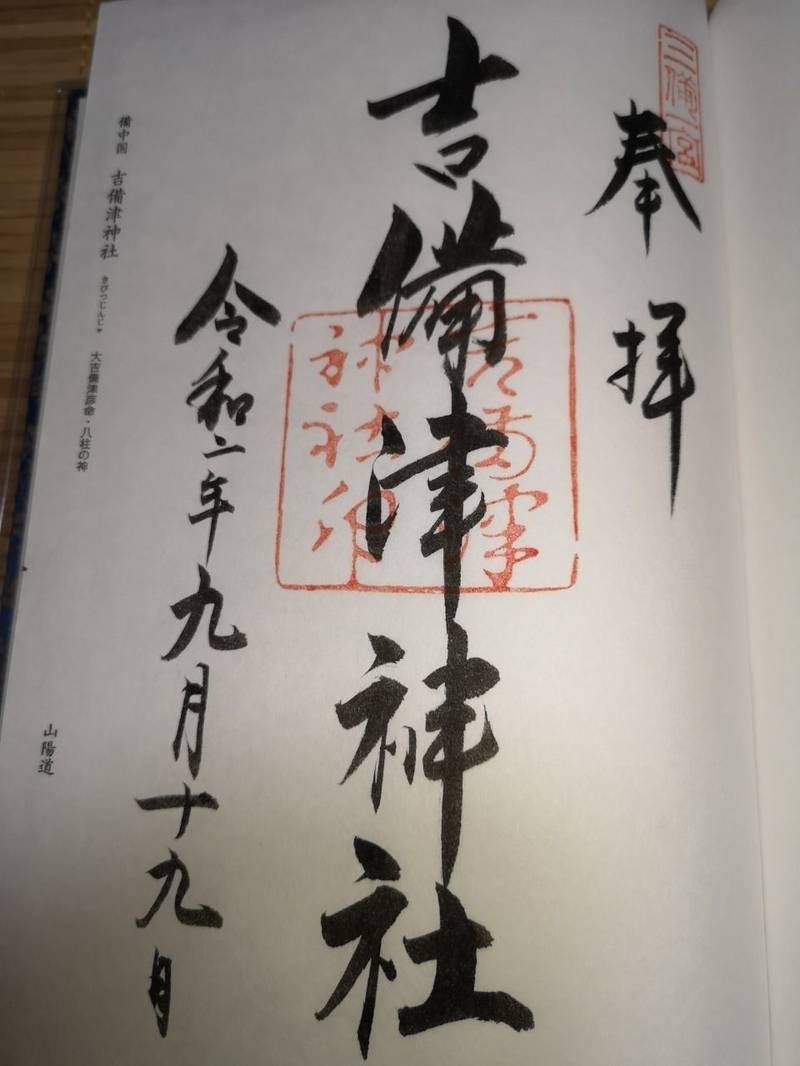 三備一宮
奉拝
吉備津神社
吉備津
神社印
令和二年九月十九日
備中国 吉備津神社 きびつじんじゃ 大吉備津彦命・八柱の神
山陽道